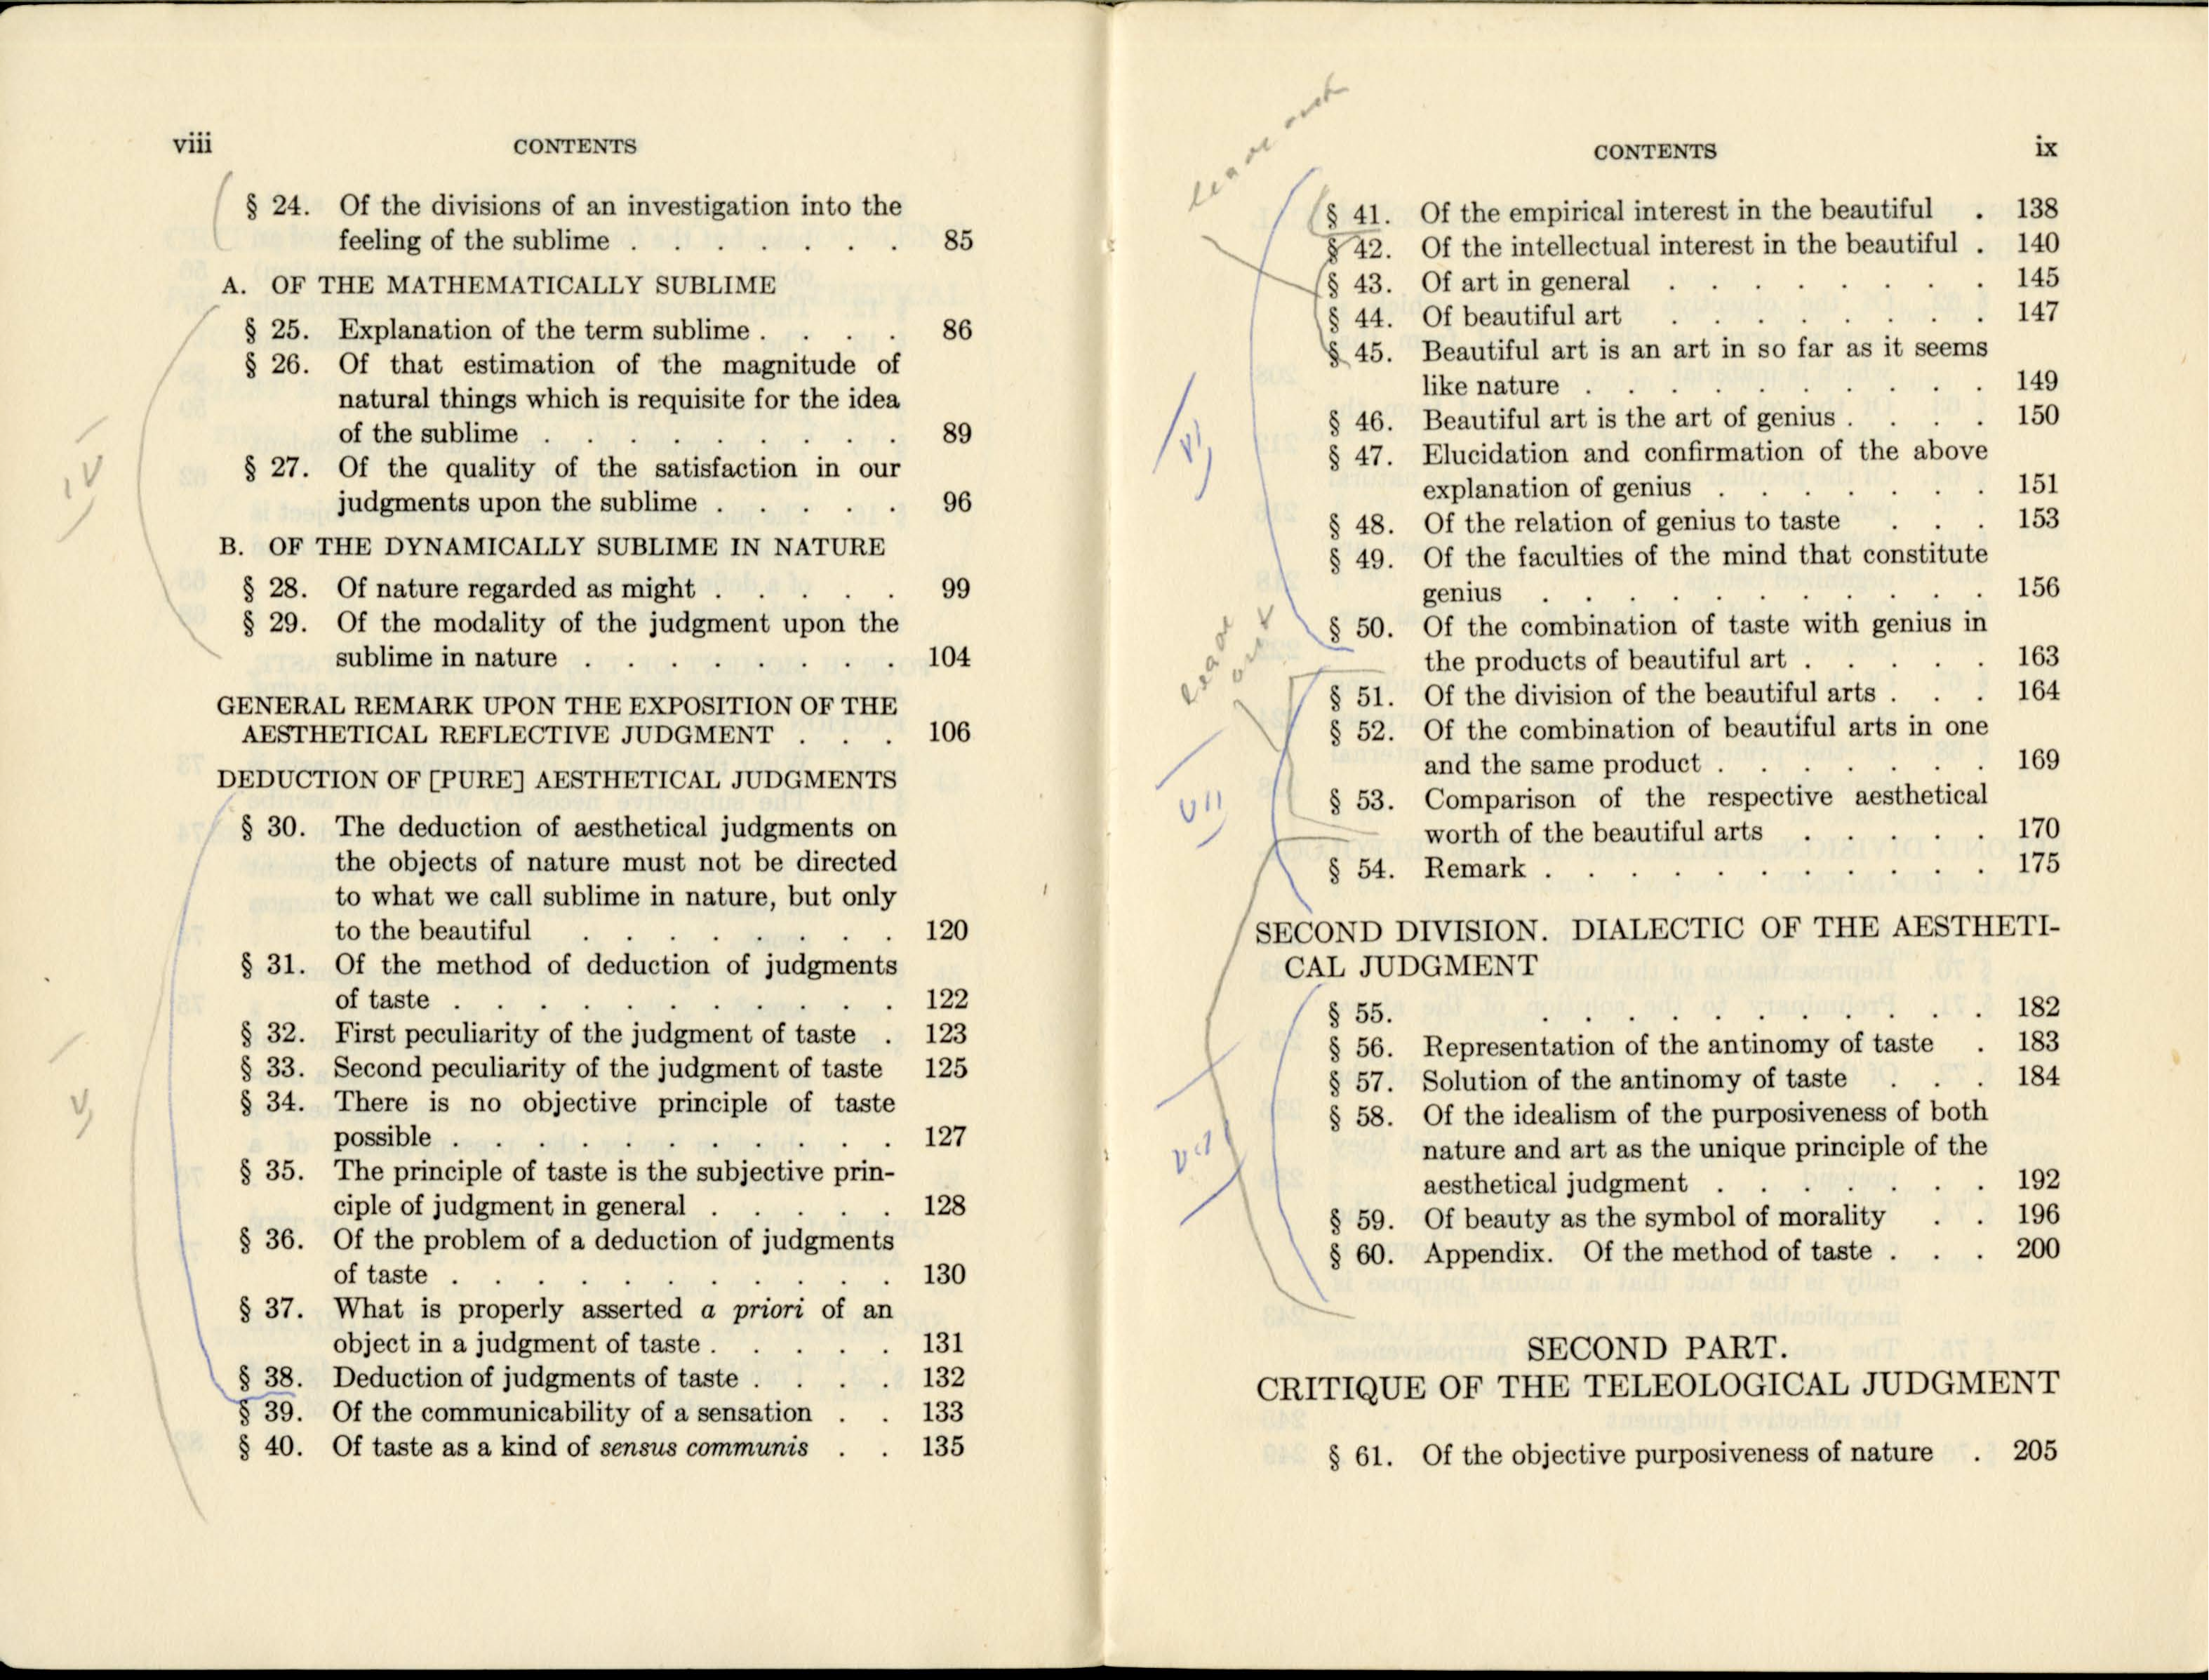 viii
CONTENTS
§ 24. Of the divisions of an investigation into the
feeling of the sublime . . . . . . . 85
A. OF THE MATHEMATICALLY SUBLIME
§ 25. Explanation of the term sublime . . . . 86
§ 26. Of that estimation of the magnitude of
natural things which is requisite for the idea
of the sublime . . . . . . . . . 89
§ 27. Of the quality of the satisfaction in our
judgments upon the sublime . . . . . 96
B. OF THE DYNAMICALLY SUBLIME IN NATURE
§ 28. Of nature regarded as might . . . . . 99
§ 29. Of the modality of the judgment upon the
sublime in nature . . . . . . . . 104
GENERAL REMARK UPON THE EXPOSITION OF THE
AESTHETICAL REFLECTIVE JUDGMENT . . . 106
DEDUCTION OF [PURE] AESTHETICAL JUDGMENTS
§ 30. The deduction of aesthetical judgments on
the objects of nature must not be directed
to what we call sublime in nature, but only
to the beautiful . . . . . . . . 120
§ 31. Of the method of deduction of judgments
of taste . . . . . . . . . . . 122
§ 32. First peculiarity of the judgment of taste . 123
§ 33. Second peculiarity of the judgment of taste 125
§ 34. There is no objective principle of taste
possible . . . . . . . . . . . 127
§ 35. The principle of taste is the subjective prin-
ciple of judgment in general . . . . . 128
§ 36. Of the problem of a deduction of judgments
of taste . . . . . . . . . . . 130
§ 37. What is properly asserted a priori of an
object in a judgment of taste . . . . . 131
§ 38. Deduction of judgments of taste . . . . 132
§ 39. Of the communicability of a sensation . . 133
§ 40. Of taste as a kind of sensus communis . . 135
IV
V
CONTENTS
ix
leave out
§ 41. Of the empirical interest in the beautiful . 138
§ 42. Of the intellectual interest in the beautiful . 140
§ 43. Of art in general . . . . . . . . 145
§ 44. Of beautiful art . . . . . . . . 147
§ 45. Beautiful art is an art in so far as it seems
like nature . . . . . . . . . . 149
§ 46. Beautiful art is the art of genius . . . . 150
§ 47. Elucidation and confirmation of the above
explanation of genius . . . . . . . 151
§ 48. Of the relation of genius to taste . . . 153
§ 49. Of the faculties of the mind that constitute
genius . . . . . . . . . . . 156
§ 50. Of the combination of taste with genius in
the products of beautiful art . . . . . 163
§ 51. Of the division of the beautiful arts . . . 164
§ 52. Of the combination of beautiful arts in one
and the same product . . . . . . . 169
§ 53. Comparison of the respective aesthetical
worth of the beautiful arts . . . . . 170
§ 54. Remark . . . . . . . . . . . 175
VI
leave
out
VII
SECOND DIVISION. DIALECTIC OF THE AESTHETI-
CAL JUDGMENT
§ 55. . . . . . . . . . . . 182
§ 56. Representation of the antinomy of taste . 183
§ 57. Solution of the antinomy of taste . . . 184
§ 58. Of the idealism of the purposiveness of both
nature and art as the unique principle of the
aesthetical judgment . . . . . . . 192
§ 59. Of beauty as the symbol of morality . . 196
§ 60. Appendix. Of the method of taste . . . 200
SECOND PART.
CRITIQUE OF THE TELEOLOGICAL JUDGMENT
§ 61. Of the objective purposiveness of nature . 205